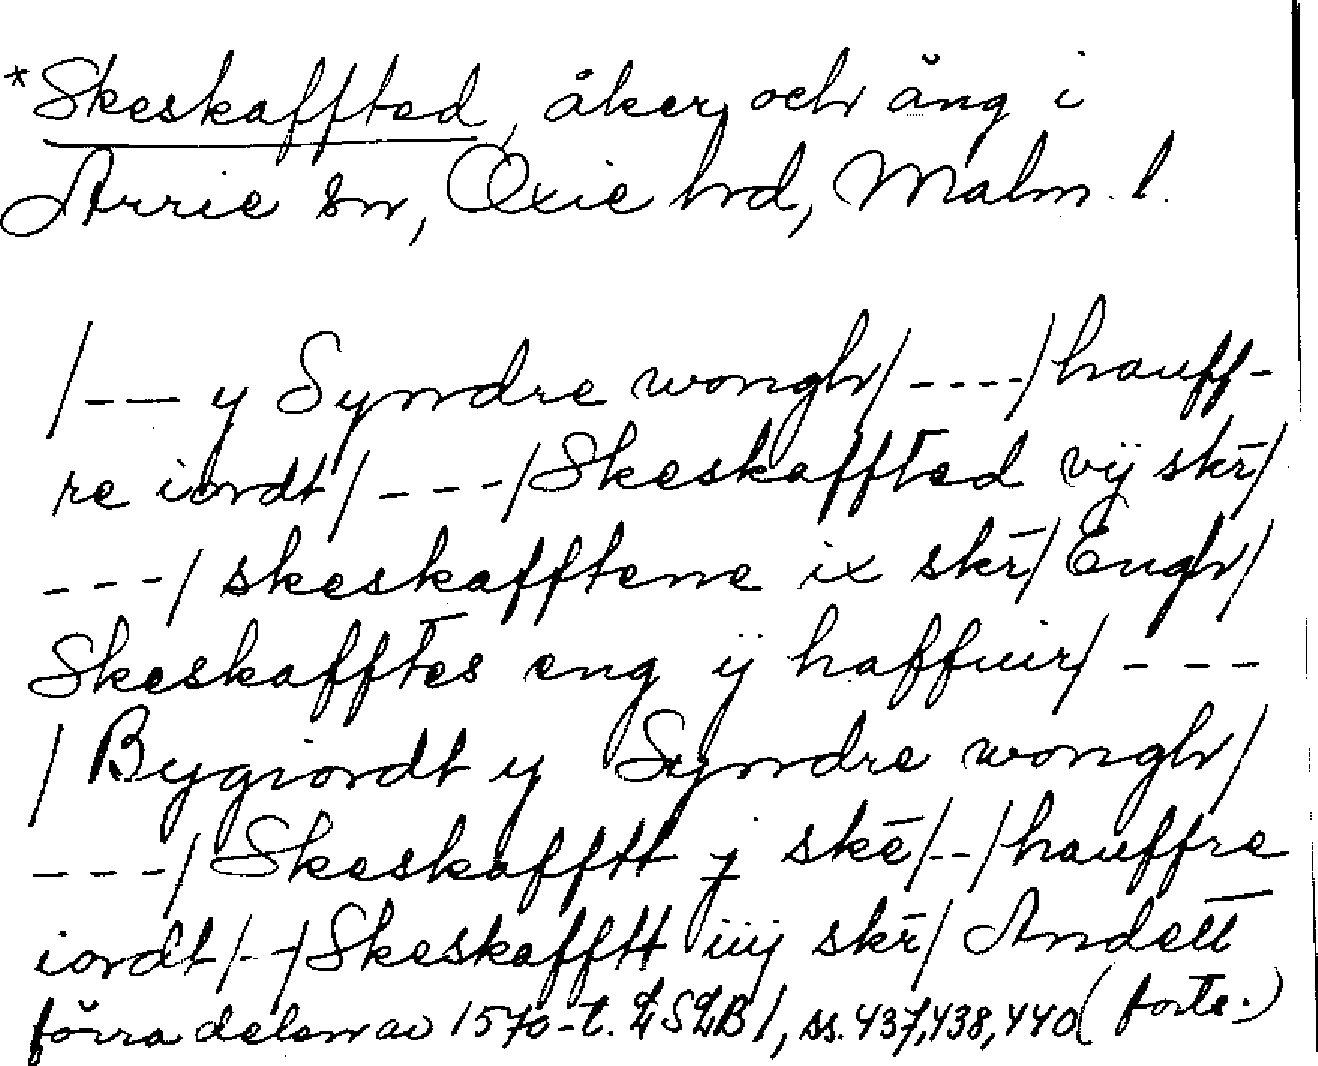 *Skeskaffted, åker och äng i
Arrie sn, Oxie hd, Malm. l.
/--- y Syndre wongh/ ----/ hauff-
re iordt/ ---/ Skeskaffted vÿ skr̄/
---/ skeskafftene ix skr̄/ Engh/
Skeskafftes eng ÿ haffuir/ ---
/ Bygiordt y Syndre wongh/
---/ Skeskafftt j skē/--/ hauffre
iordt/--/ Skeskafftt iiij skr̄/ Andett
förra delen av 1570-t. LSLB 1, ss. 437, 438, 440 (forts.)